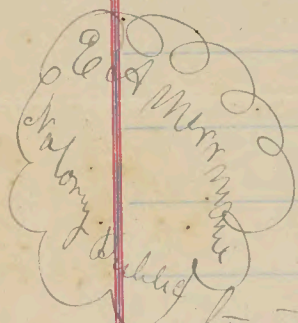 E A Merrimane
Notory Publid